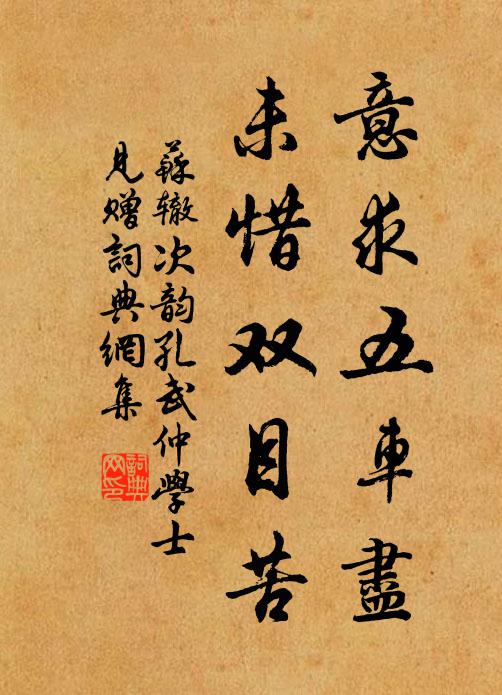 意求五車盡
未惜双目苦
蘇辙次韵孔武仲學士
見贈詞典網集
詞典
网印